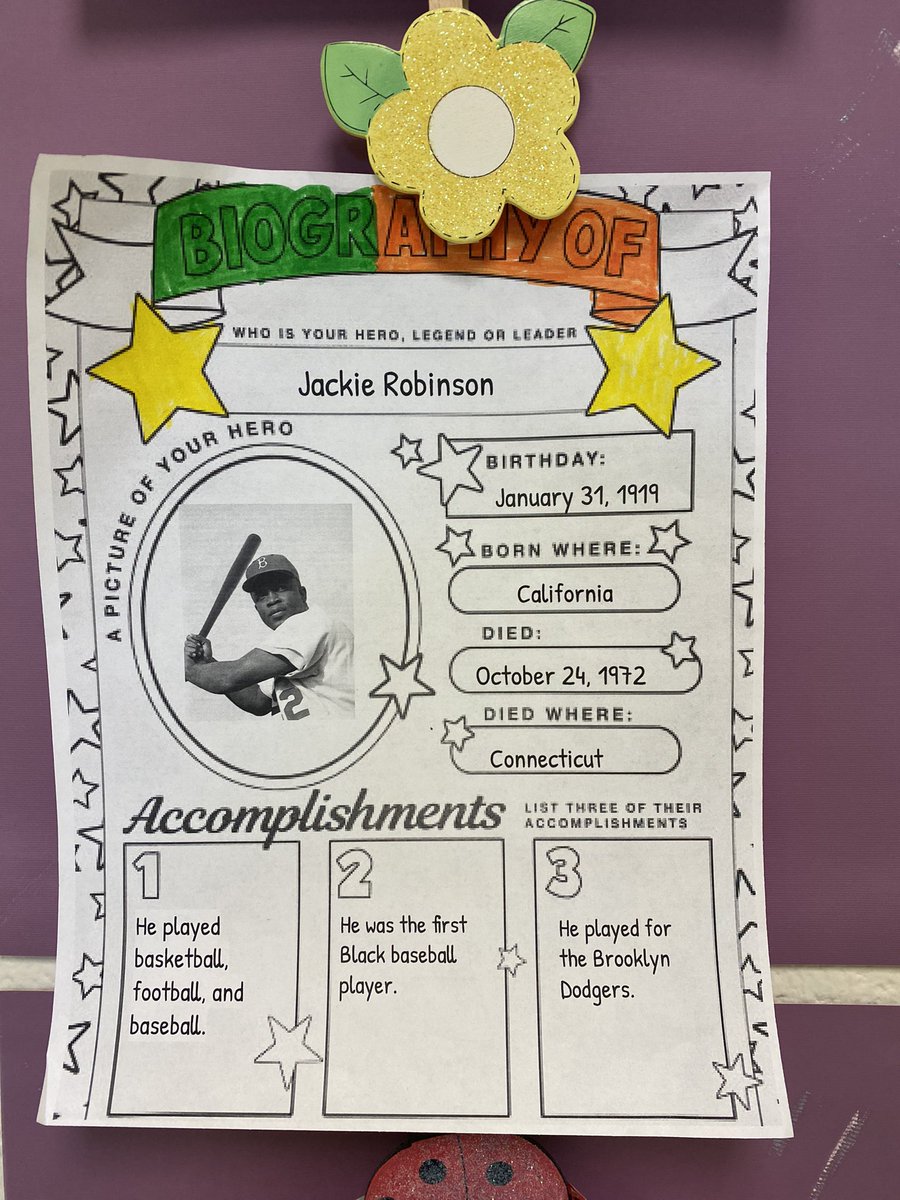 BIOGRAPHY OF
WHO IS YOUR HERO, LEGEND OR LEADER
Jackie Robinson
A PICTURE OF YOUR HERO
B
2
BIRTHDAY:
January 31, 1919
BORN WHERE:
California
DIED:
October 24, 1972
DIED WHERE:
Connecticut
Accomplishments
LIST THREE OF THEIR
ACCOMPLISHMENTS
1
He played
basketball,
football, and
baseball.
2
He was the first
Black baseball
player.
3
He played for
the Brooklyn
Dodgers.